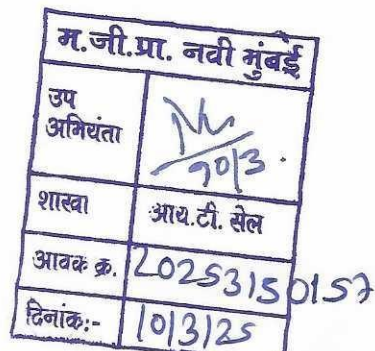 म.जी.प्रा. नवी मुंबई
उप
अभियंता
१०/३.
शाखा
आय.टी. सेल
आवक क्र.
20253150157
दिनांक:-
10/3/25